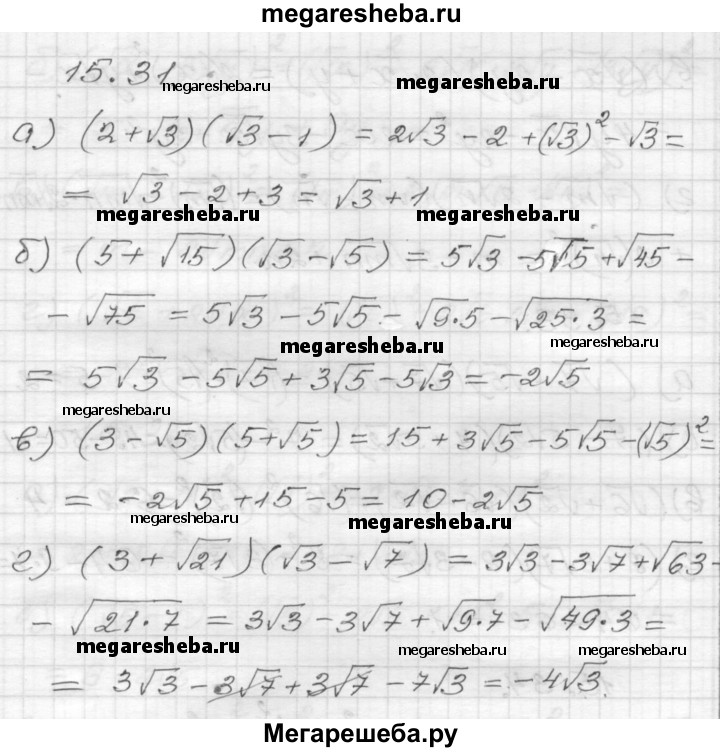 megaresheba.ru
15.31
megaresheba.ru megaresheba.ru
а) (2+√3)(√3-1) = 2√3 - 2 + (√3)² - √3 =
= √3 - 2 + 3 = √3 + 1
megaresheba.ru megaresheba.ru
б) (5 + √15)(√3 - √5) = 5√3 - 5√5 + √45 -
- √75 = 5√3 - 5√5 - √9·5 - √25·3 =
megaresheba.ru megaresheba.ru
= 5√3 - 5√5 + 3√5 - 5√3 = -2√5
megaresheba.ru
в) (3 - √5)(5+√5) = 15 + 3√5 - 5√5 - (√5)² =
= -2√5 + 15 - 5 = 10 - 2√5
megaresheba.ru megaresheba.ru
г) (3 + √21)(√3 - √7) = 3√3 - 3√7 + √63 -
- √21·7 = 3√3 - 3√7 + √9·7 - √49·3 =
megaresheba.ru megaresheba.ru megaresheba.ru
= 3√3 - 3√7 + 3√7 - 7√3 = -4√3.
Мегарешеба.ру